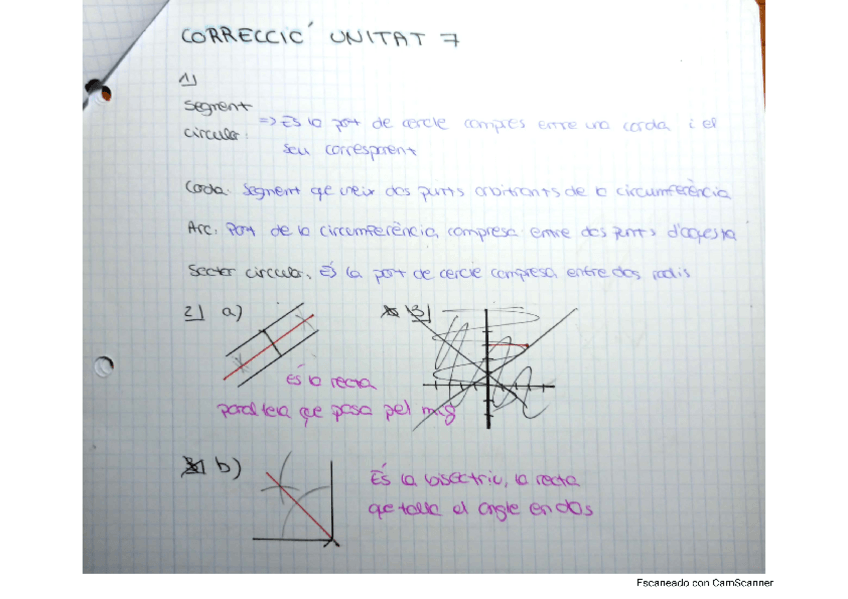 CORRECCIÓ UNITAT 7
1)
Segment
circular: => És la part de cercle compres entre una corda i el
seu corresponent
Corda: Segment que uneix dos punts arbitrants de la circumferència
Arc: Part de la circumferència, compresa entre dos punts d'aquesta
Sector circular: És la part de cercle compresa, entre dos radis
2) a)
3)
És la recta
paral·lela que pasa pel mig
b)
És la bisectriu, la recta
que talla el angle en dos
Escaneado con CamScanner